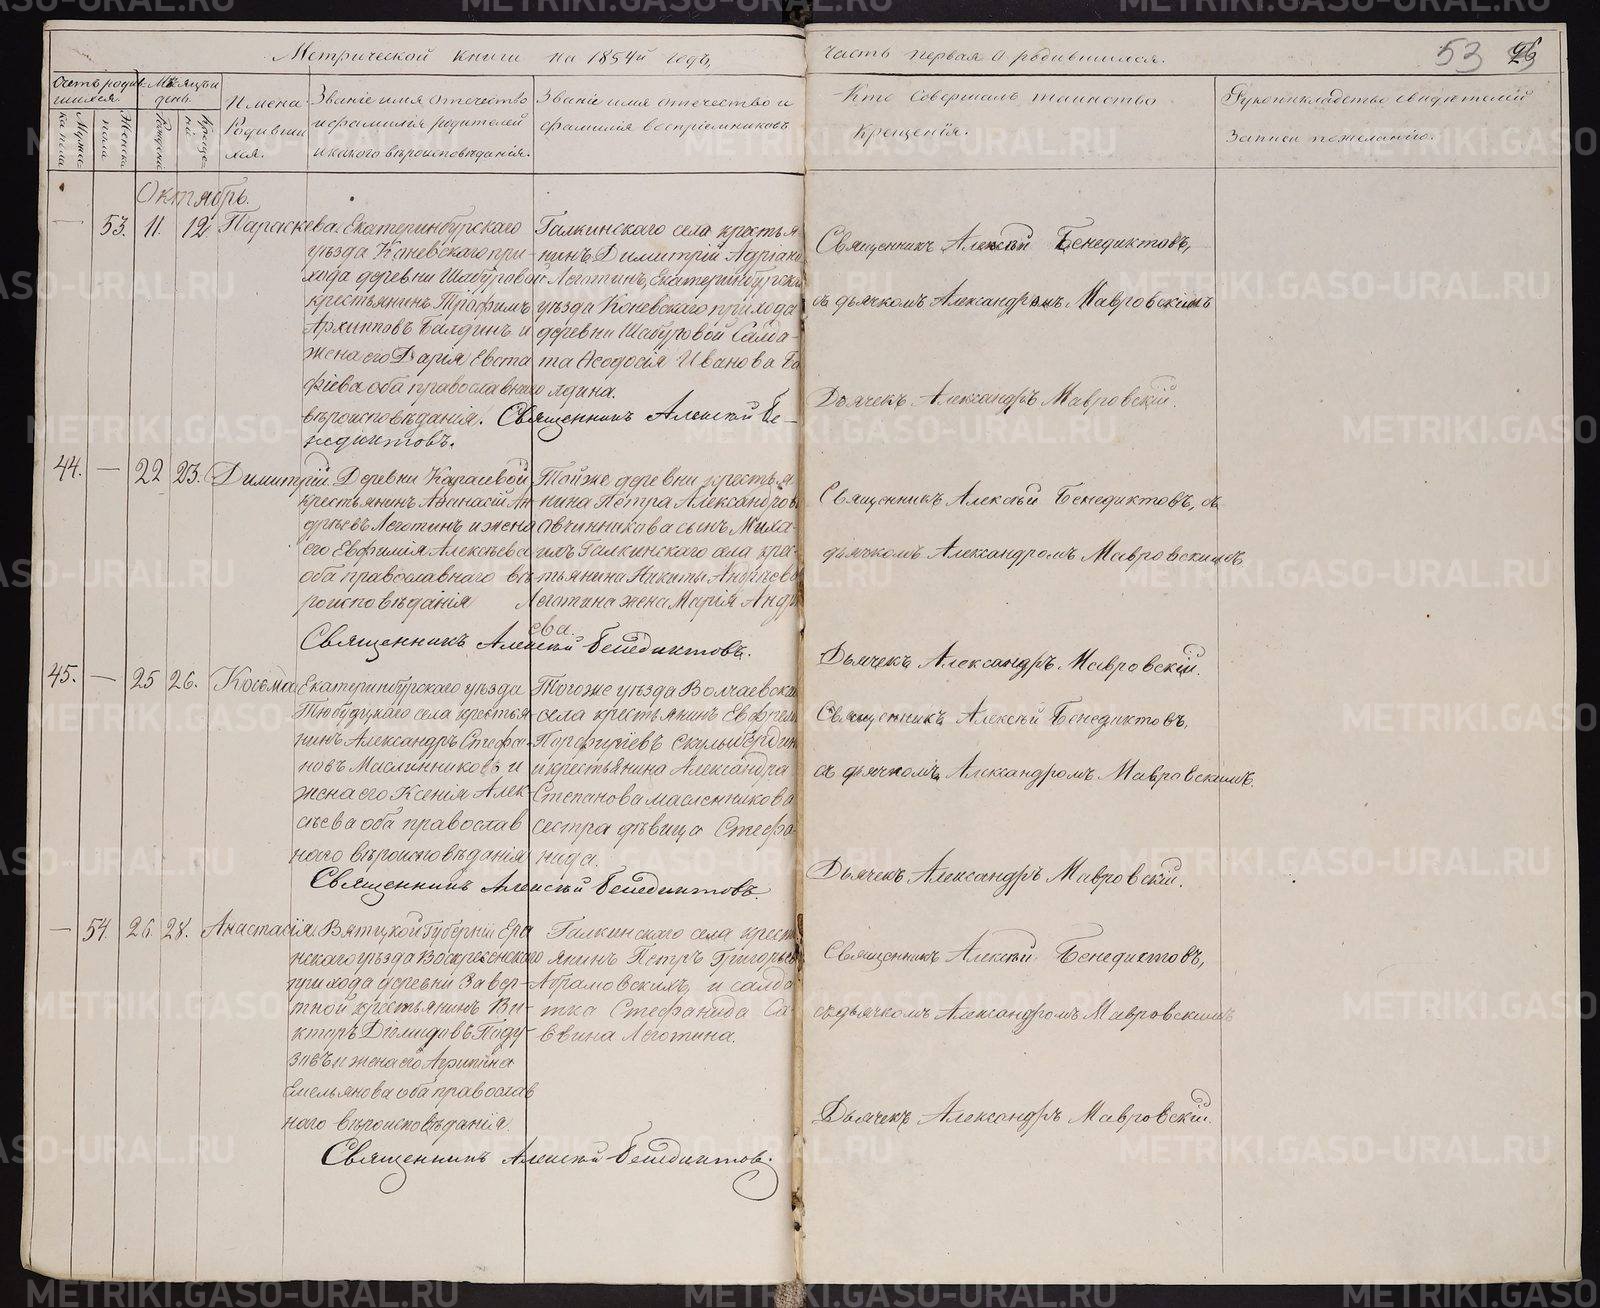 Метрической книги на 1854й годъ,
Часть первая о родившихся.
53
Счетъ родившихся.
Мѣсяцъ и день.
Имена Родившихся.
Званіе имя отечество
и фамилія родителей
и какого вѣроисповѣданія.
Званіе имя отечество и
фамилія воспріемниковъ
Кто совершалъ таинство
Крещенія.
Рукоприкладство свидѣтелей
Записи пожеланію.
Мужеска пола
Женска пола
Рожденія
Крещеній
Октябрь.
— 53. 11. 12. Параскева.
Екатеринбургскаго
уѣзда Каневскаго при-
хода деревни Шабуровой
крестьянинъ Трофимъ
Архиповъ Балдинъ и
жена его Дарія Евста
фіева оба православнаго
вѣроисповѣданія. Священникъ Алексѣй Бе-
недиктовъ.
Галкинскаго села крестья
нинъ Димитрій Адріано
Леготинъ, Екатеринбургска
уѣзда Коневскаго прихода
деревни Шабуровой Салда-
та Ѳеодосія Иванова Ба
лдина.
Священникъ Алексѣй Бенедиктовъ,
съ дьячкомъ Александромъ Мавровскимъ
Дьячекъ Александръ Мавровскій.
44. — 22 23. Димитрій.
Деревни Карасевой
крестьянинъ Аѳанасій Ан
дреевъ Леготинъ и жена
его Евфимія Алексѣева
оба православнаго вѣ
роисповѣданія
Тойже деревни крестья
нина Петра Александрова
Овчинникова сынъ Миха-
илъ Галкинскаго села крес-
тьянина Никиты Андреева
Леготина жена Марія Андре
ева.
Священникъ Алексѣй Бенедиктовъ.
Священникъ Алексѣй Бенедиктовъ, съ
дьячкомъ Александромъ Мавровскимъ
Дьячекъ Александръ Мавровскій.
45. — 25 26. Косьма
Екатеринбургскаго уѣзда
Тюбукскаго села крестья-
нинъ Александръ Стефа-
новъ Масленниковъ и
жена его Ксенія Алек-
сѣева оба православ
наго вѣроисповѣданія
Тогоже уѣзда
села крестьянинъ
Порфиріевъ
и крестьянина Александра
Степанова Масленникова
сестра дѣвица Стефа-
нида.
Священникъ Алексѣй Бенедиктовъ.
Священникъ Алексѣй Бенедиктовъ,
съ дьячкомъ Александромъ Мавровскимъ.
Дьячекъ Александръ Мавровскій.
— 54. 26. 28. Анастасія.
Вятцкой Губерніи Ера
нскаго уѣзда Воскресенскаго
прихода деревни Завер-
тной крестьянинъ Ви-
кторъ Діомидовъ
и жена его Агрипина
Емельянова оба православ
наго вѣроисповѣданія.
Галкинскаго села кресть
янинъ Петръ Григорьевъ
Абрамовскихъ, и салда
тка Стефанида Са-
ввина Леготина.
Священникъ Алексѣй Бенедиктовъ.
Священникъ Алексѣй Бенедиктовъ,
съ дьячкомъ Александромъ Мавровскимъ
Дьячекъ Александръ Мавровскій.
METRIKI.GASO-URAL.RU